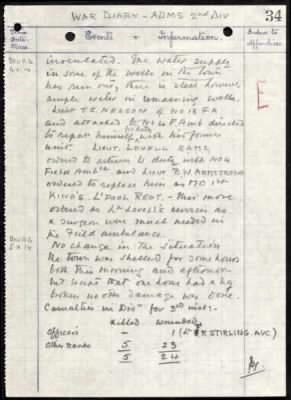 WAR DIARY - ADMS 2nd DIV
34
Date
Place
Events & Information.
Index to
appendices
inoculated. The water supply
in some of the wells in the town
has run out, there is still however
ample water in remaining wells.
Lieut T.E. NELSON of No 18 FA
and attached to No 4 F Amb directed
to report himself for duty with his former
unit. LIEUT. LOVELL RAMC
owned to return to duty with No 4
Field Ambce and Lieut B.W ARMSTRONG
ordered to replace him as MO 1st
KING'S. L'POOL REGT. - This move
ordered as Lt Lovell's services as
a surgeon were much needed in
the Field ambulance.
No change in the situation
the town was shelled for some hours
both this morning and afternoon
but except that one horse had a leg
broken no other damage was done.
Casualties in Divn for 3rd inst:-
Killed Wounded
Officers - 1 (Lt STIRLING A&C)
Other Ranks 5 23
5 24